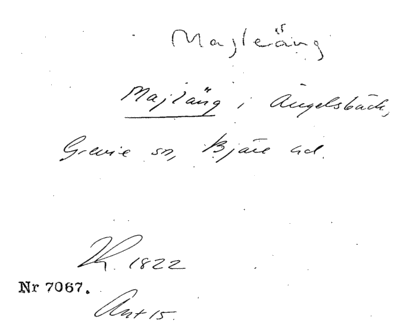 Majleäng
Majläng i Ängelsbäck,
Grevie sn, Bjäre hd.
1822
Nr 7067.
Ant 15.